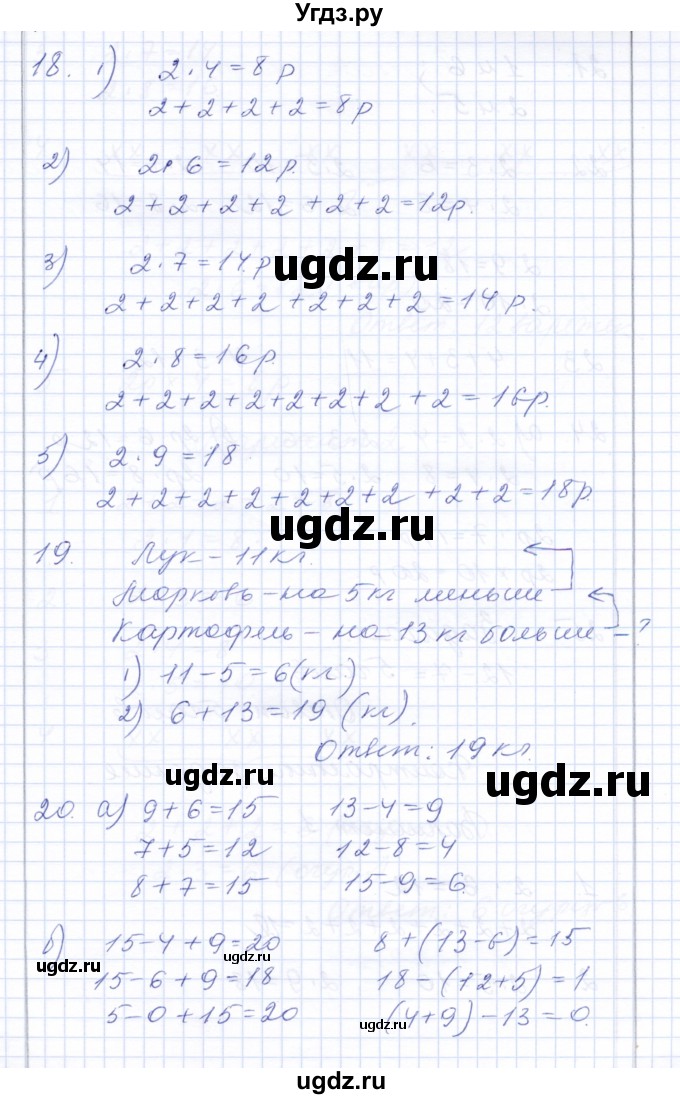 Угдз.ру
18. 1) 2 · 4 = 8 р
2 + 2 + 2 + 2 = 8 р
2) 2 · 6 = 12 р.
2 + 2 + 2 + 2 + 2 + 2 = 12 р.
3) 2 · 7 = 14 р
ugdz.ru
2 + 2 + 2 + 2 + 2 + 2 + 2 = 14 р.
4) 2 · 8 = 16 р.
2 + 2 + 2 + 2 + 2 + 2 + 2 + 2 = 16 р.
5) 2 · 9 = 18
2 + 2 + 2 + 2 + 2 + 2 + 2 + 2 + 2 = 18 р.
ugdz.ru
19. Лук – 11 кг.
Морковь – на 5 кг меньше
Картофель – на 13 кг больше – ?
1) 11 – 5 = 6 (кг.)
2) 6 + 13 = 19 (кг).
Ответ: 19 кг.
ugdz.ru ugdz.ru
20. а) 9 + 6 = 15 13 – 4 = 9
7 + 5 = 12 12 – 8 = 4
8 + 7 = 15 15 – 9 = 6.
б) 15 – 4 + 9 = 20 8 + (13 – 6) = 15
ugdz.ru
15 – 6 + 9 = 18 18 – (12 + 5) = 1
5 – 0 + 15 = 20 (4 + 9) – 13 = 0.
ugdz.ru
ugdz.ru
ugdz.ru